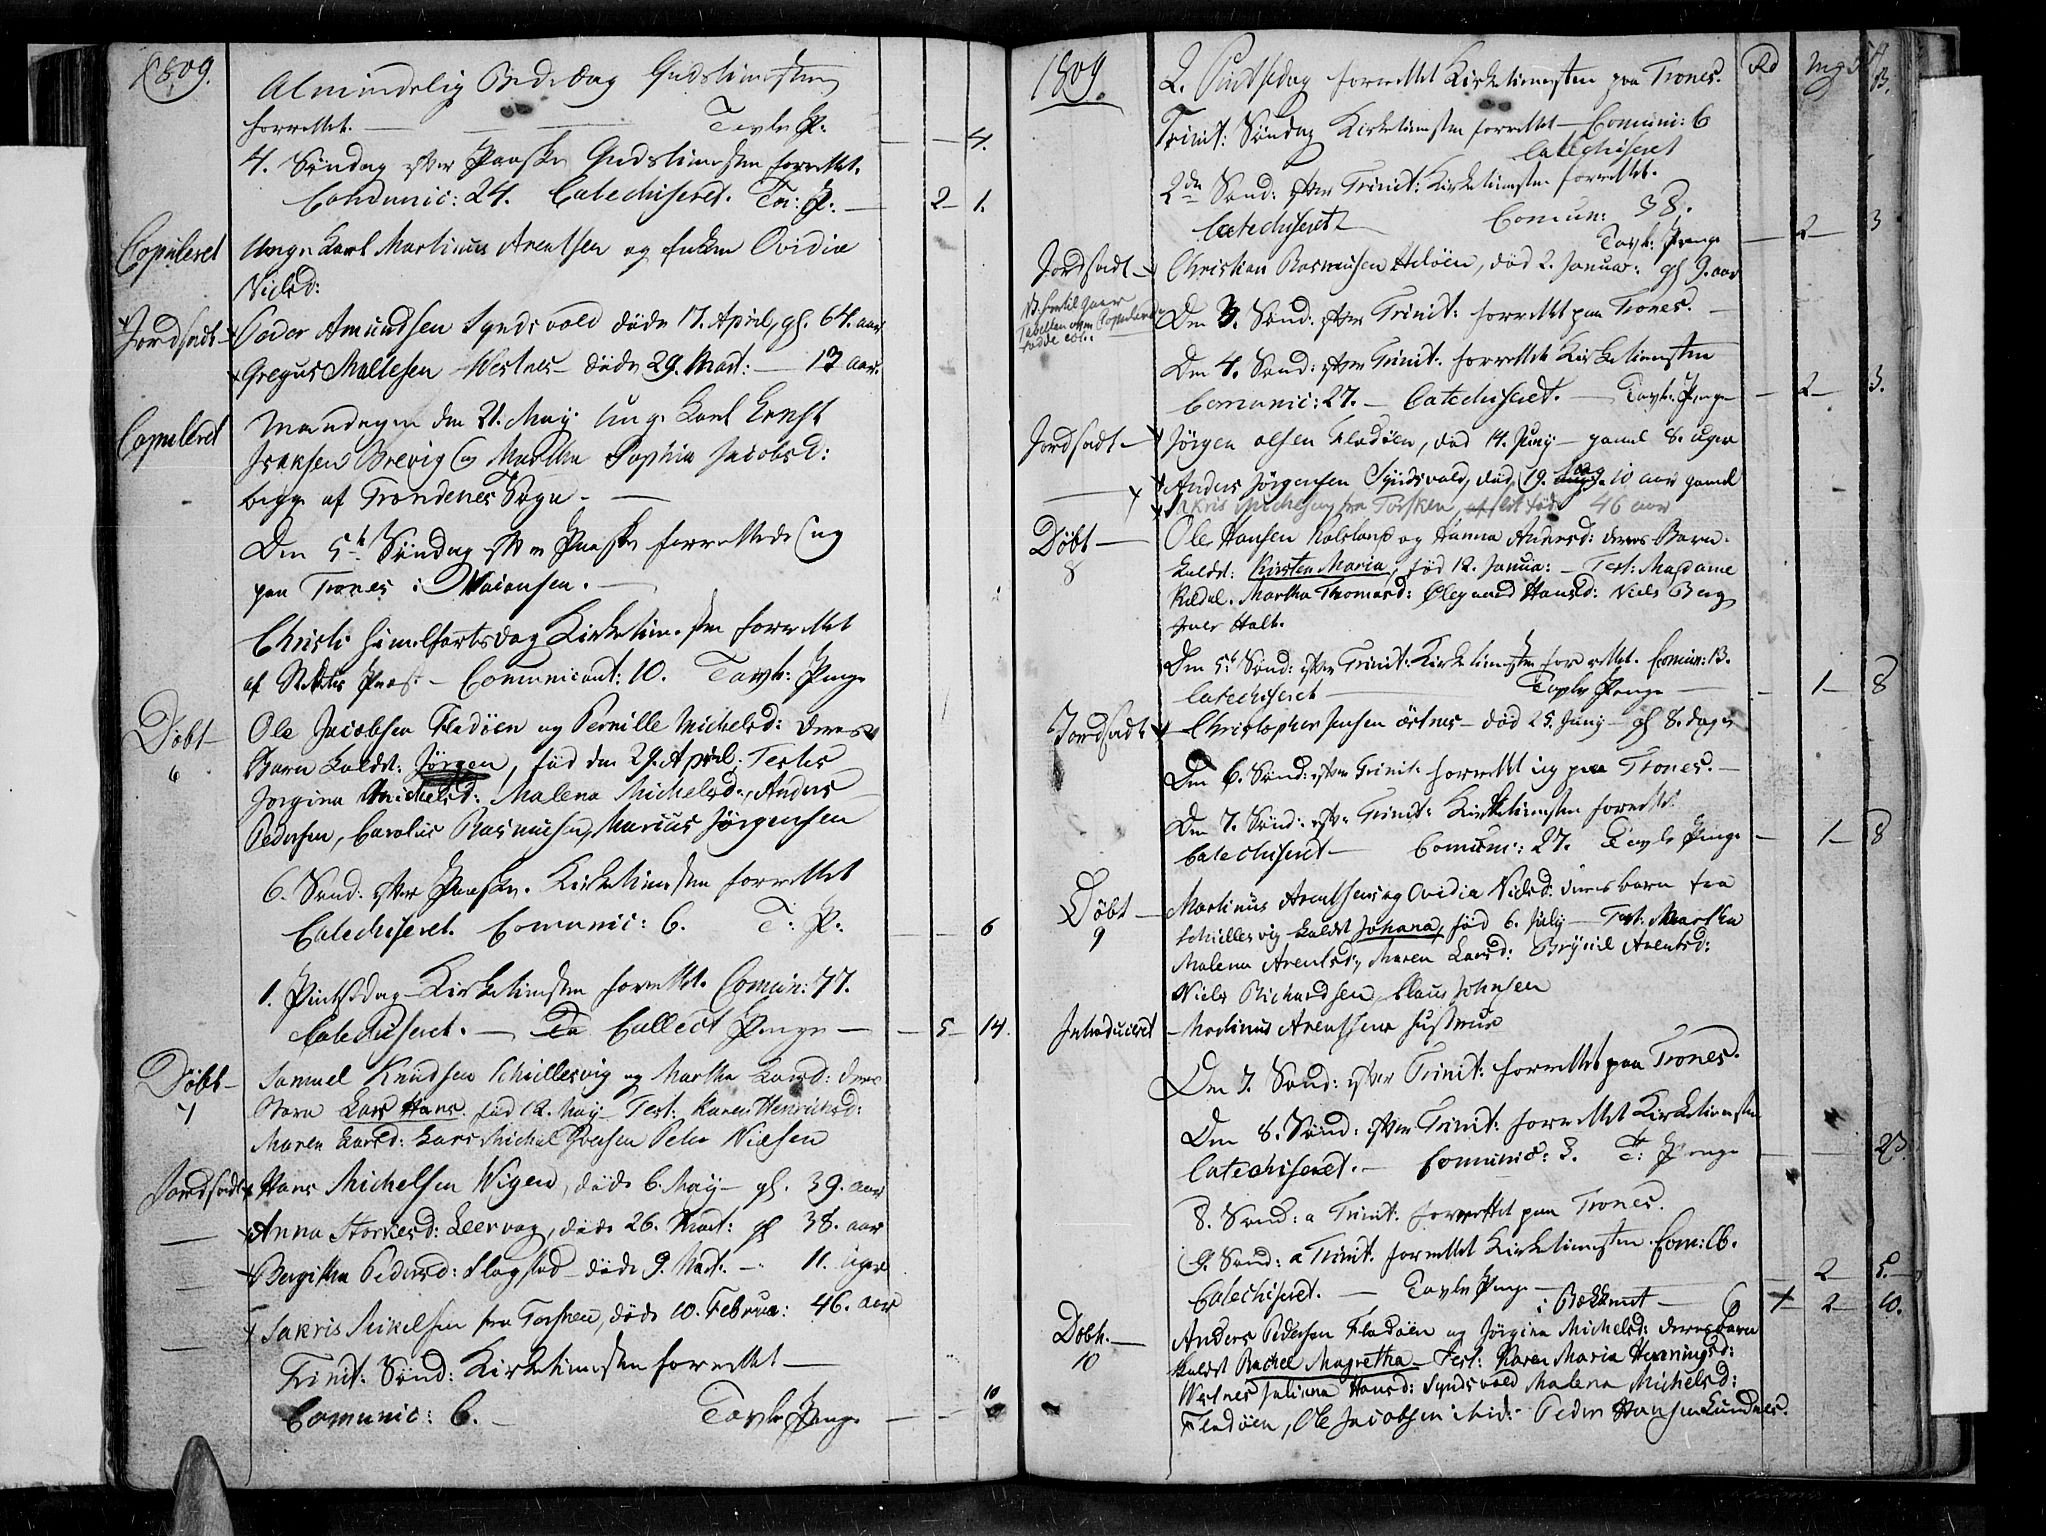 1809.
Almindelig Bededag Gudstienesten
forrettet. — Tavle P: — — 4.
4. Søndag efter Paaske Gudstienesten forrettet.
Comunic: 24. Catechiseret. Ta: P: — 2 — 1.
Copuleret Unge Karl Martinus Arentsen og Enken Ovidia
Nielsd:
Jordfadt — Peder Amundsen Syndsvold døde 17. April, gl. 64. aar
Gregus Maltesen Westnes — døde 29. Mart: — 13 aar.
Copuleret Mandagen den 21. May Unge Karl Ernst
Isaksen Brevig og Martha Sophia Jacobsd:
begge af Trondenes Sogn —
Den 5te Søndag efter Paaske forrettede ieg
paa Trones i
Christi Himelfartsdag Kirketienesten forrettet
af Præst — Comunicant: 10. Tavle: Penge
Døbt — Ole Jacobsen Fladøen og Pernille Michelsd: deres
6 Barn kaldt: Jørgen, fød den 29. April. Testes
Jorgina Michelsd: Malena Michelsd:, Anders
Pedersen, Carolus Rasmusen, Marius Jørgensen
6. Sønd: efter Paaske. Kirketienesten forrettet
Catechiseret. Comunic: 6. T: P: — — 6
1. Pintsedag Kirketienesten forrettet. Comun: 77.
Catechiseret. — Ta Collect Penge — — 5 — 14.
Døbt — Samuel Knudsen Schiellesvig og Martha Larsd: deres
7 Barn Lars Hans fød 12. May Test: Karen Henrichsd:
Maren Larsd: Lars Michel Iversen Peter Nielsen
Jordfadt Hans Michelsen Wigen, døde 6. May — gl. 39. aar
— Anna Storkersd: Leervog, døde 26. Mart: gl 38. aar
— Bergitha Pedersd: Flagstad — døde 9. Mart. — 11. uger
— Sakris Mikelsen fra Torsken, døde 10. Februar: 46. aar
Trinit: Sønd: Kirketienesten forrettet —
Comunic: 6. — Tavle Penge — — 10
1809. 2. Pintsedag forrettet Kirketienesten paa Trones. Rd mg B.
Trinit: Søndag Kirketienesten forrettet — Comuni: 6
Catechiseret
2den Sønd: efter Trinit: Kirketienesten forrettet.
Catechiseret Comun: 38.
Tavle: Penge — 2 — 3
Jordfadt — Christian Rasmusen Heløen, død 2. Januar: gl 9. aar
NB hertil gaaer
Tabellen over Copulerede
fødde etc:
Den 3. Sønd: efter Trinit: forrettet paa Trones. —
Den 4. Sønd: efter Trinit: forrettet Kirketienesten
Comunic: 27. — Catechiseret. — Tavle: Penge — 2 — 3.
Jordfadt — Jørgen Olsen Fladøen, død 14. Juny — gamel 8. uger
— Anders Jørgensen Syndsvold, død 19. 10 aar gamel
Sakris Michelsen fra Torsken, 46 aar
Døbt — Ole Hansen Kalsland og Hanna Andersd: deres Barn
8 kaldt: Kirsten Maria, fød 12. Janua: — Test: Madame
Rædel. Martha Thomasd: Ølegaard Hansd: Niels Berg
Iver Holt.
Den 5te Sønd: efter Trinit: Kirketienesten forrettet. Comun: 13.
Catechiseret — Tavle Penge — — 1 — 8
Jordfadt Christopher Jensen Østnes — død 25. Juny — gl 8. dager
Den 6. Sønd: efter Trinit: forrettet ieg paa Trones. —
Den 7. Sønd: efter Trinit: Kirketienesten forrettet
Catechiseret — Comun: 27. Tavle Penge — 1 — 8
Døbt — Martinus Arentsen og Ovidia Nielsd: deres barn fra
9 Schiellesvig kaldt Johana, fød 6. July — Test: Martha
Malena Arentsd:, Maren Larsd: Brynil Arentsd:
Niels Richardsen, Claus Johnsen
Introduceret — Martinus Arentsens hustrue
Den 7. Sønd: efter Trinit: forrettet paa Trones.
Den 8. Sønd: efter Trinit: forrettet Kirketienesten
Catechiseret. — Comunic: 3. T: Penge — — 23.
8. Sønd: a Trinit: forrettet paa Trones.
9. Sønd: a Trinit: forrettet Kirketienesten. Com: 16.
Catechiseret. — Tavle Penge — — 2 — 5.
i Bekkenet — 2 — 10.
Døbt. — Anders Pedersen Fladøen og Jørgina Michelsd: deres barn
10 kaldt Rachel Magretha — Test: Karen Maria Henningsd:
Westnes Juliana Hansd: Syndsvold Malena Michelsd:
Fladøen, Ole Jacobsen ibid: Peder Hansen Lundnes.